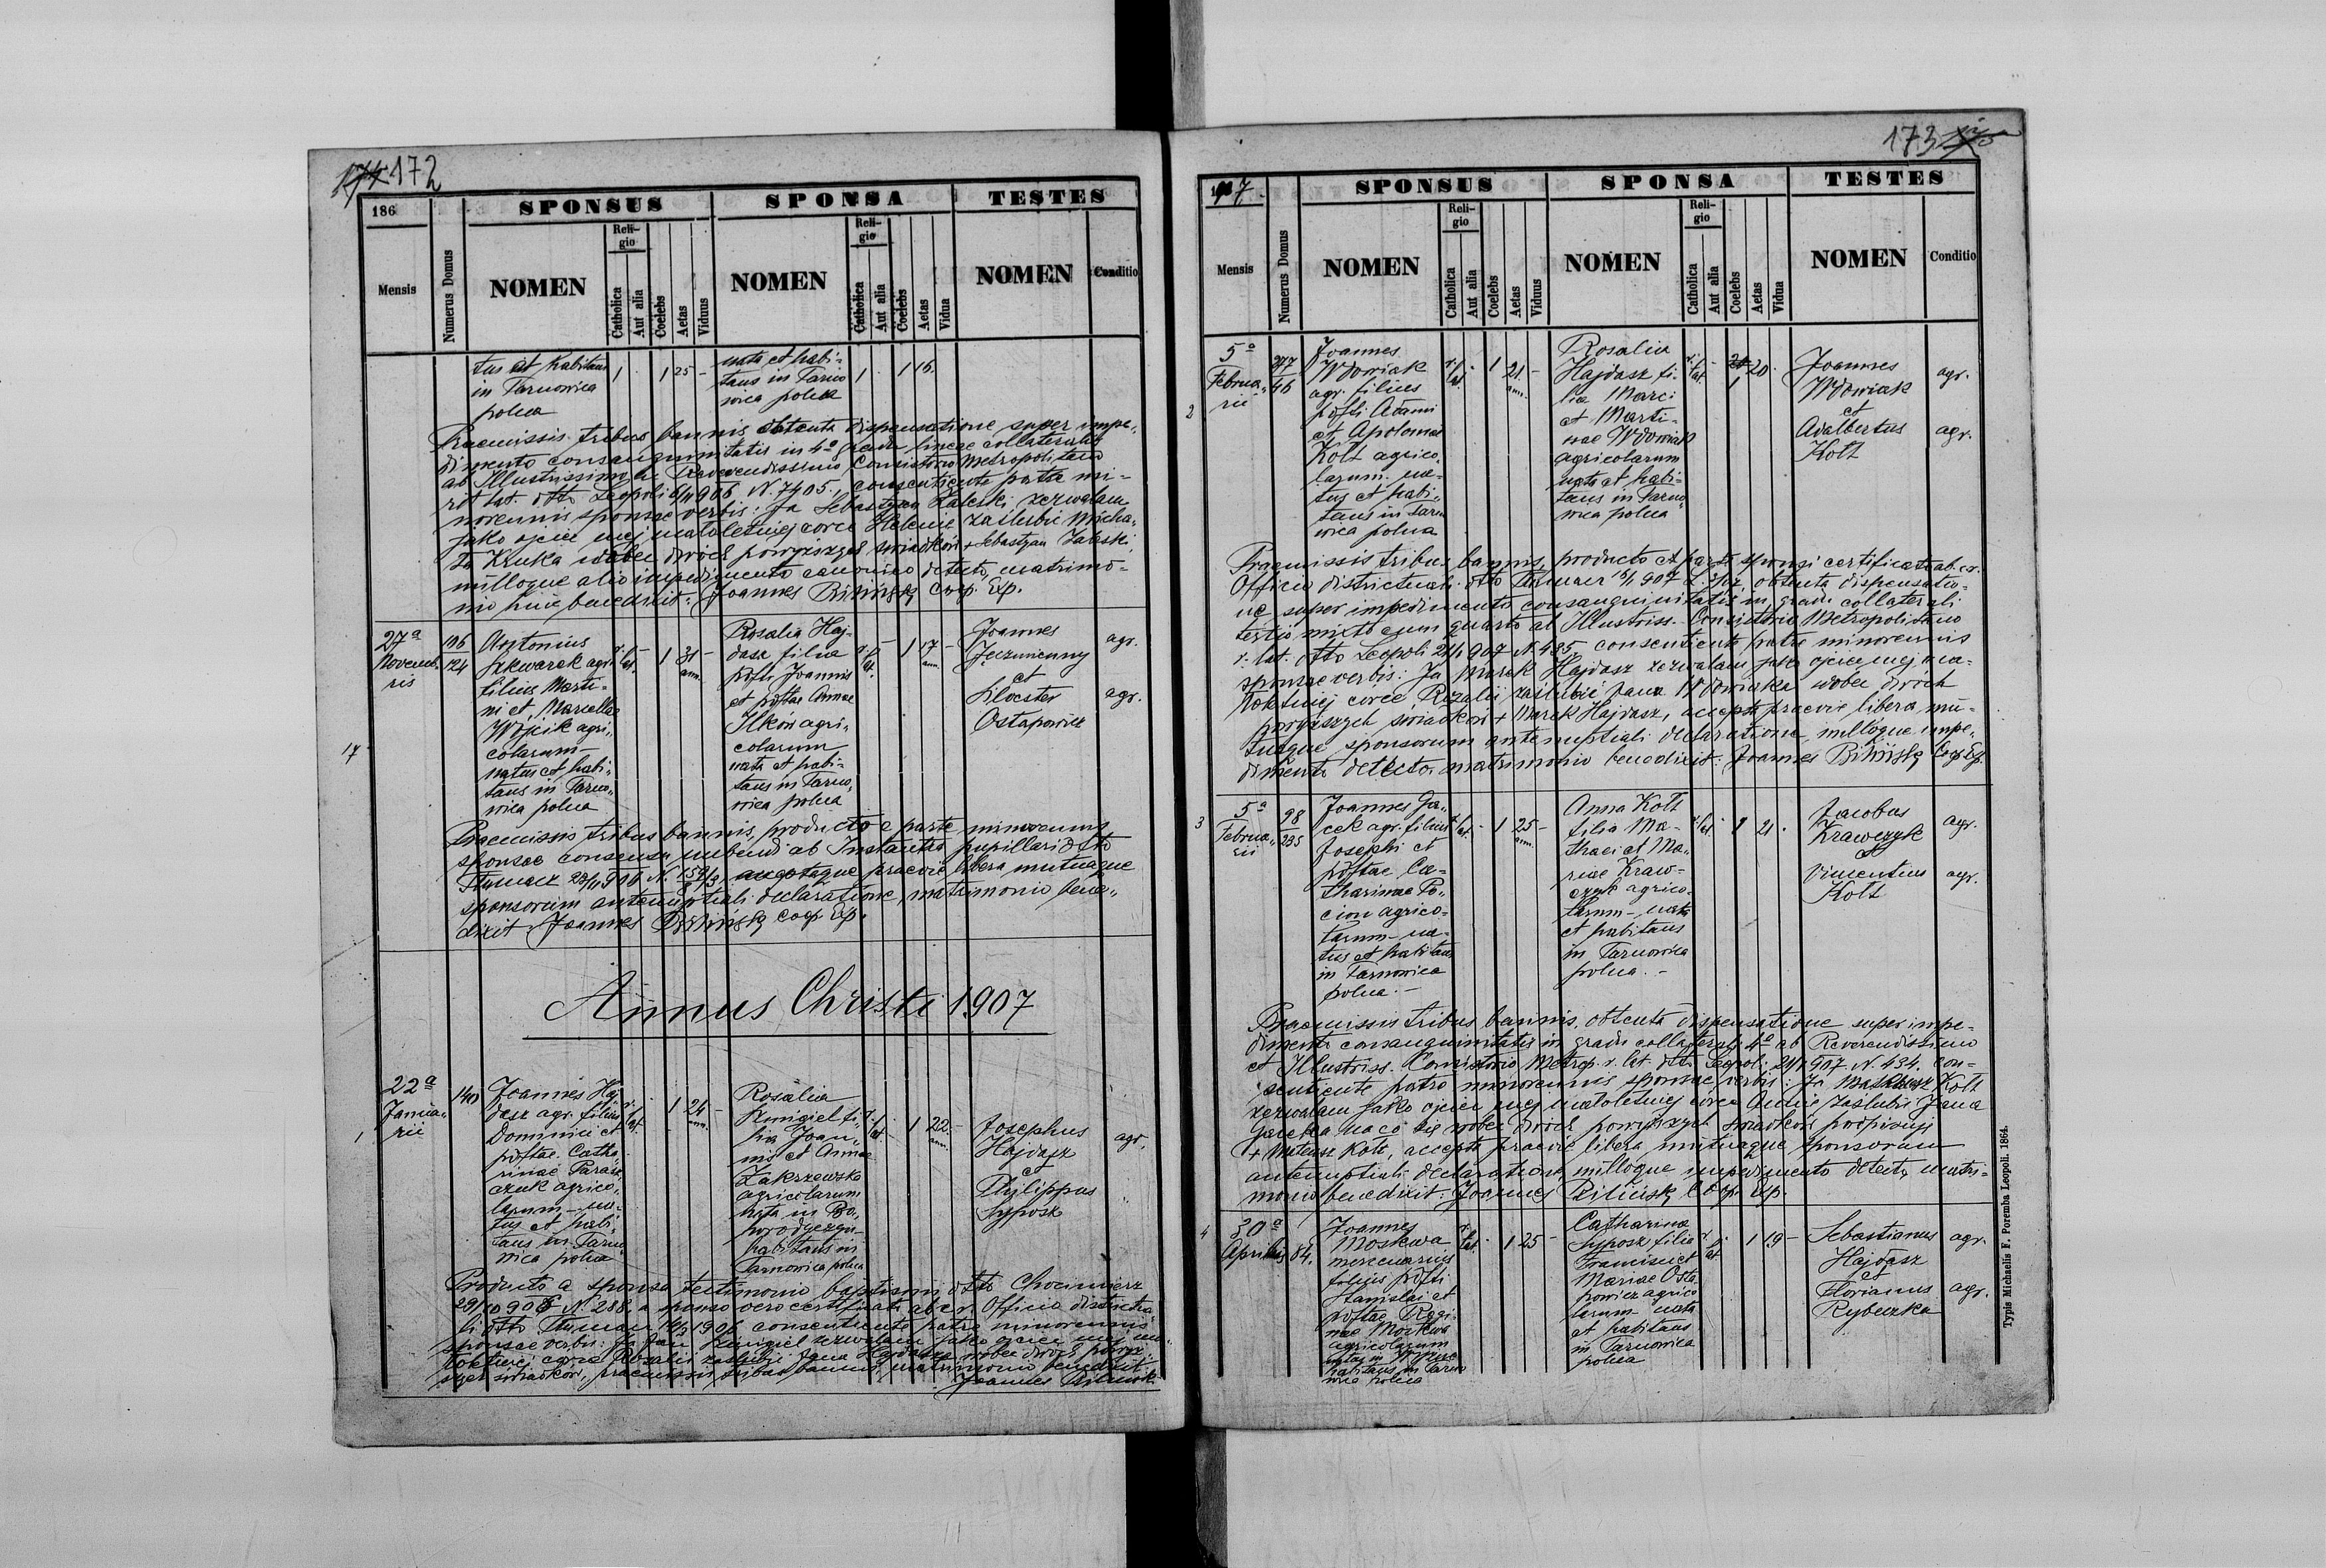 172
186
SPONSUS
SPONSA
TESTES
Mensis
Numerus Domus
NOMEN
Religio
Catholica
Aut alia
Coelebs
Aetas
Viduus
NOMEN
Religio
Catholica
Aut alia
Coelebs
Aetas
Vidua
NOMEN
Conditio
tus et habitans
in Tarnowica
polna
1 1 25 -
nata et habi=
tans in Tarno
wica polna
1 1 16.
Praemissis tribus bannis obtenta dispensatione super impe„
dimento consanguinitatis in 4º gradu lineae collateralis
ab Illustrissimo et Reverendissimo Consistorio Metropolitano
rit. lat. dtto Leopoli 906 N. 7405, consentiente patre mi-
norennis sponsae verbis: Ja Sebastyan Zaleski zezwalam
jako ojciec mej małoletniej córce Helenie zaślubić Micha„
ła Kruka wobec dwóch powyższych świadków + Sebastyan Zaleski,
nulloque alio impedimento canonico detecto, matrimo=
nio huic benedixit: Joannes Coop. Exp.
17
27ª
Novemb.
ris
106
124
Antonius
Szkwarek agr.
filius Marti=
ni et Marcellae
Wójcik agri„
colarum –
natus et habi„
tans in Tarno„
wica polna
r. lat.
1 31 ann.
Rosalia Haj-
dasz filia
pᵒfti Joannis
et pᵒftae Annae
Ilków agri„
colarum
nata et habi=
tans in Tarno„
wica polna
r. lat.
1 17 ann.
Joannes
Jęczmienny
et
Silvester
Ostapowicz
agr.
agr.
Praemissis tribus bannis, producto e parte minorennis
sponsae consensu nubendi ab Instantia pupillari dtto
Tłumacz 906 N. praevie libera mutuaque
sponsorum antenuptiali declaratione, matrimonio bene„
dixit Joannes Coop. Exp.
Annus Christi 1907
1
22ª
Janua„
rii
140
Joannes Haj
dasz agr. filius
Dominici et
pᵒftae Catha„
rinae Parasz
czuk agrico„
larum – na„
tus et habi„
tans in Tarno
wica polna
r. lat.
1 24 ann.
Rosalia
Kmigiel fi„
lia Joan„
nis et Annae
Zakrzewska
agricolarum
nata in
habitans in
Tarnowica polna
r. lat.
1 22 ann.
Josephus
Hajdasz
et
Philippus
Syposz
agr.
„
Producto a sponsa testimonio baptismi dtto Chocimierz
N. 288, a sponso vero certificati ab c.r. Officio districtua
li dtto Tłumacz 1906 consentiente patre minorennis
sponsae verbis: Ja Jan Kmigiel zezwalam jako ojciec mej ma„
łoletniej córce Rozalii zaślubić Jana Hajdasza wobec dwóch powyż„
szych świadków, praemissis tribus bannis, matrimonio benedixit
Joannes
173
7
SPONSUS
SPONSA
TESTES
Mensis
Numerus Domus
NOMEN
Religio
Catholica
Aut alia
Coelebs
Aetas
Viduus
NOMEN
Religio
Catholica
Aut alia
Coelebs
Aetas
Vidua
NOMEN
Conditio
2
5ª
Februa„
rii
277
46
Joannes
Wdowiak
agr. filius
pᵒfti Adami
et Apoloniae
Kołt agrico„
larum. na„
tus et habi„
tans in Tarno
wica polna
r. lat.
1 21 ann.
Rosalia
Hajdasz fi„
lia Marci
et Marti„
nae Wdowiak
agricolarum
nata et habi„
tans in Tarno
wica polna
r. lat.
1 20
Joannes
Wdowiak
et
Adalbertus
Kołt
agr.
agr.
Praemissis tribus bannis, producto a parte sponsi certificato ab c.r.
Officio districtuali dtto Tłumacz 907 obtenta dispensatio„
ne super impedimento consanguinitatis in gradu collaterali
tertio mixto cum quarto ab Illustriss. Consistorio Metropolitano
r. lat. dtto Leopoli 21/1 907 N. 435 consentiente patre minorennis
sponsae verbis: Ja Marek Hajdasz zezwalam jako ojciec mej ma-
łoletniej córce Rozalii zaślubić Jana Wdowiaka wobec dwóch
powyższych świadków + Marek Hajdasz, accepta praevie libera mu-
tuaque sponsorum antenuptiali declaratione, nulloque impe„
dimento detecto, matrimonio benedixit: Joannes Coop. Exp.
3
5ª
Februa„
rii
98
235
Joannes Ga„
cek agr. filius
Josephi et
pᵒftae Ca=
tharinae Po„
cion agrico=
larum – na=
tus et habitans
in Tarnowica
polna. –
r. lat.
1 25 – ann.
Anna Kołt
filia Ma-
thaei et Ma„
riae Kraw=
czyk agrico„
larum – nata
et habitans
in Tarnowica
polna. –
r. lat.
1 21
Jacobus
Krawczyk
et
Vincentius
Kołt
agr.
agr.
Praemissis tribus bannis, obtenta dispensatione super impe=
dimento consanguinitatis in gradu collaterali 4º ab Reverendissimo
et Illustriss. Consistorio Metrop. r. lat. dtto Leopoli 21/1 907. N. 434. con=
sentiente patre minorennis sponsae verbis: Ja Kołt
zezwalam jako ojciec mej małoletniej córce Annie zaślubić Jana
Gacka na co się wobec dwóch powyższych świadków podpisuję
+ Mateusz Kołt, accepta praevie libera mutuaque sponsorum
antenuptiali declaratione, nulloque impedimento detecto, matri=
monio benedixit. Joannes Coop. Exp.
4
30ª
Aprilis
84.
Joannes
Moskwa
mercenarius
filius pᵒfti
Stanislai et
pᵒftae Regi„
nae Moskwa
agricolarum
natus in
habitans in Tarno
wica polna
r. lat.
1 25 –
Catharina
Syposz filia
Francisci et
Mariae Osta
powicz agrico
larum nata
et habitans
in Tarnowica
polna
r. lat.
1 19 –
Sebastianus
Hajdasz
et
Florianus
Rybczka
agr.
agr.
Typis Michaelis F. Poremba Leopoli. 1864.